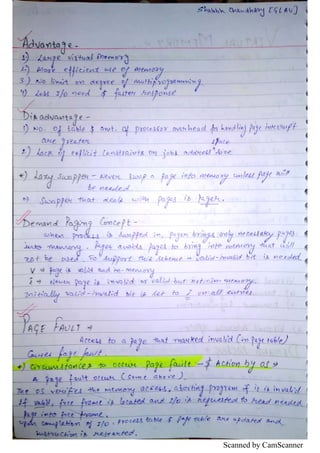 Shubham Choudhary [GLAU]
Advantage -
1) Large virtual memory
2) More efficient use of memory
3) No limit on degree of multiprogramming
4) Less I/O need & faster response
Disadvantage -
1) No. of table & amt. of processor overhead for handling page interrupt
are greater
2) Lack of explicit constraints on jobs address space size
*) Lazy swapper - Never swap a page into memory unless page will
be needed
=> Swapper that deals with pages is Pager.
Demand Paging Concept -
When process is swapped in, pager brings only necessary pages
into memory. Pager avoids pages to bring into memory that will
not be used. To support this scheme → valid-invalid bit is needed
V → page is valid and in-memory
i → page is invalid or valid but not in memory.
Initially valid-invalid bit is set to i on all entries
PAGE FAULT →
Access to a page that marked invalid (in page table)
Causes page fault.
*) Circumstances to occur Page fault - & Action by OS →
A page fault occur (same above).
The OS verifies the memory access, aborting program if it is invalid
If valid, free frame is located and I/O is requested to read needed
page into free frame.
Upon completion of I/O, process table & page table are updated and
instruction is restarted.
Scanned by CamScanner